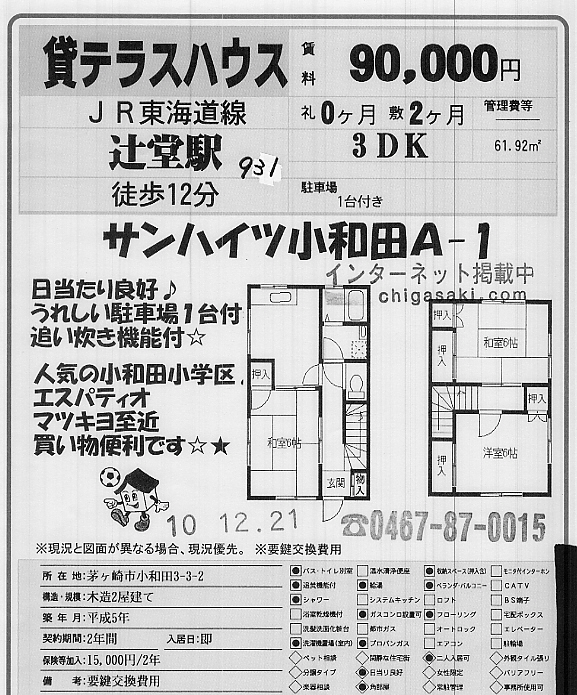 貸テラスハウス
賃料 90,000円
JR東海道線
礼 0ヶ月 敷 2ヶ月 管理費等
辻堂駅
931
3DK 61.92㎡
徒歩12分
駐車場
1台付き
サンハイツ小和田A-1
インターネット掲載中
chigasaki.com
日当たり良好♪
うれしい駐車場1台付
追い炊き機能付☆
人気の小和田小学区♪
エスパティオ
マツキヨ至近
買い物便利です☆★
押入
和室6帖
玄関
物入
押入
和室6帖
押入
押入
洋室6帖
押入
10 12.21
☎0467-87-0015
※現況と図面が異なる場合、現況優先。 ※要鍵交換費用
所在地:茅ヶ崎市小和田3-3-2
構造・規模:木造2階建て
築年月:平成5年
契約期間:2年間 入居日:即
保険等加入:15,000円/2年
備考:要鍵交換費用
●バス・トイレ別室 □温水清浄便座 ●収納スペース(押入含) □モニタ付インターホン
●追焚機能 ●給湯 ●ベランダ・バルコニー □CATV
●シャワー □システムキッチン □ロフト □BS端子
□浴室乾燥機付 ●ガスコンロ設置可 ●フローリング □宅配ボックス
□洗髪洗面化粧台 □都市ガス □オートロック □エレベーター
●洗濯機置場(室内) ●プロパンガス □エアコン □駐輪場
◇ペット相談 ◇閑静な住宅街 ●二人入居可 ◇外観タイル張り
◇分譲タイプ ●日当り良好 ◇女性限定 ◇バリアフリー
◇楽器相談 ●角部屋 ◇常駐管理 ◇事務所使用可